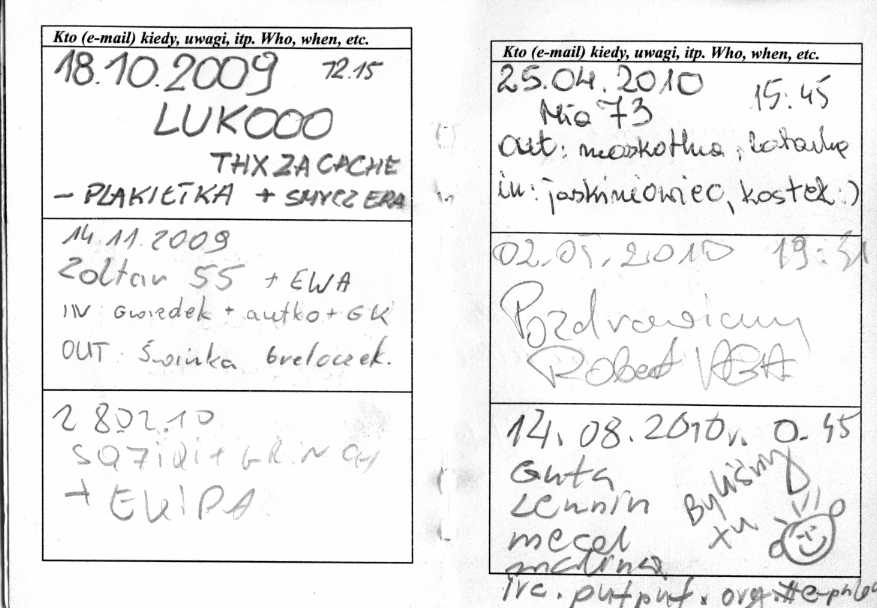 Kto (e-mail) kiedy, uwagi, itp. Who, when, etc.
18.10.2009 12.15
LUKOOO
THX ZA CACHE
- PLAKIETKA + SMYCZ ERA
14.11.2009
Zoltar 55 + EWA
IN Gwizdek + autko + GK
OUT: Świnka breloczek.
28.02.10
+ EKIPA
Kto (e-mail) kiedy, uwagi, itp. Who, when, etc.
25.04.2010 15:45
Mia 73
out: maskotka, latarka
in: jaskiniowiec, kostek :)
02.05.2010 19:51
Pozdrawiamy
Robert
14.08.2010r. 0.45
Guta
Lennin
mecel
malina
Byliśmy
tu
irc.putput.org